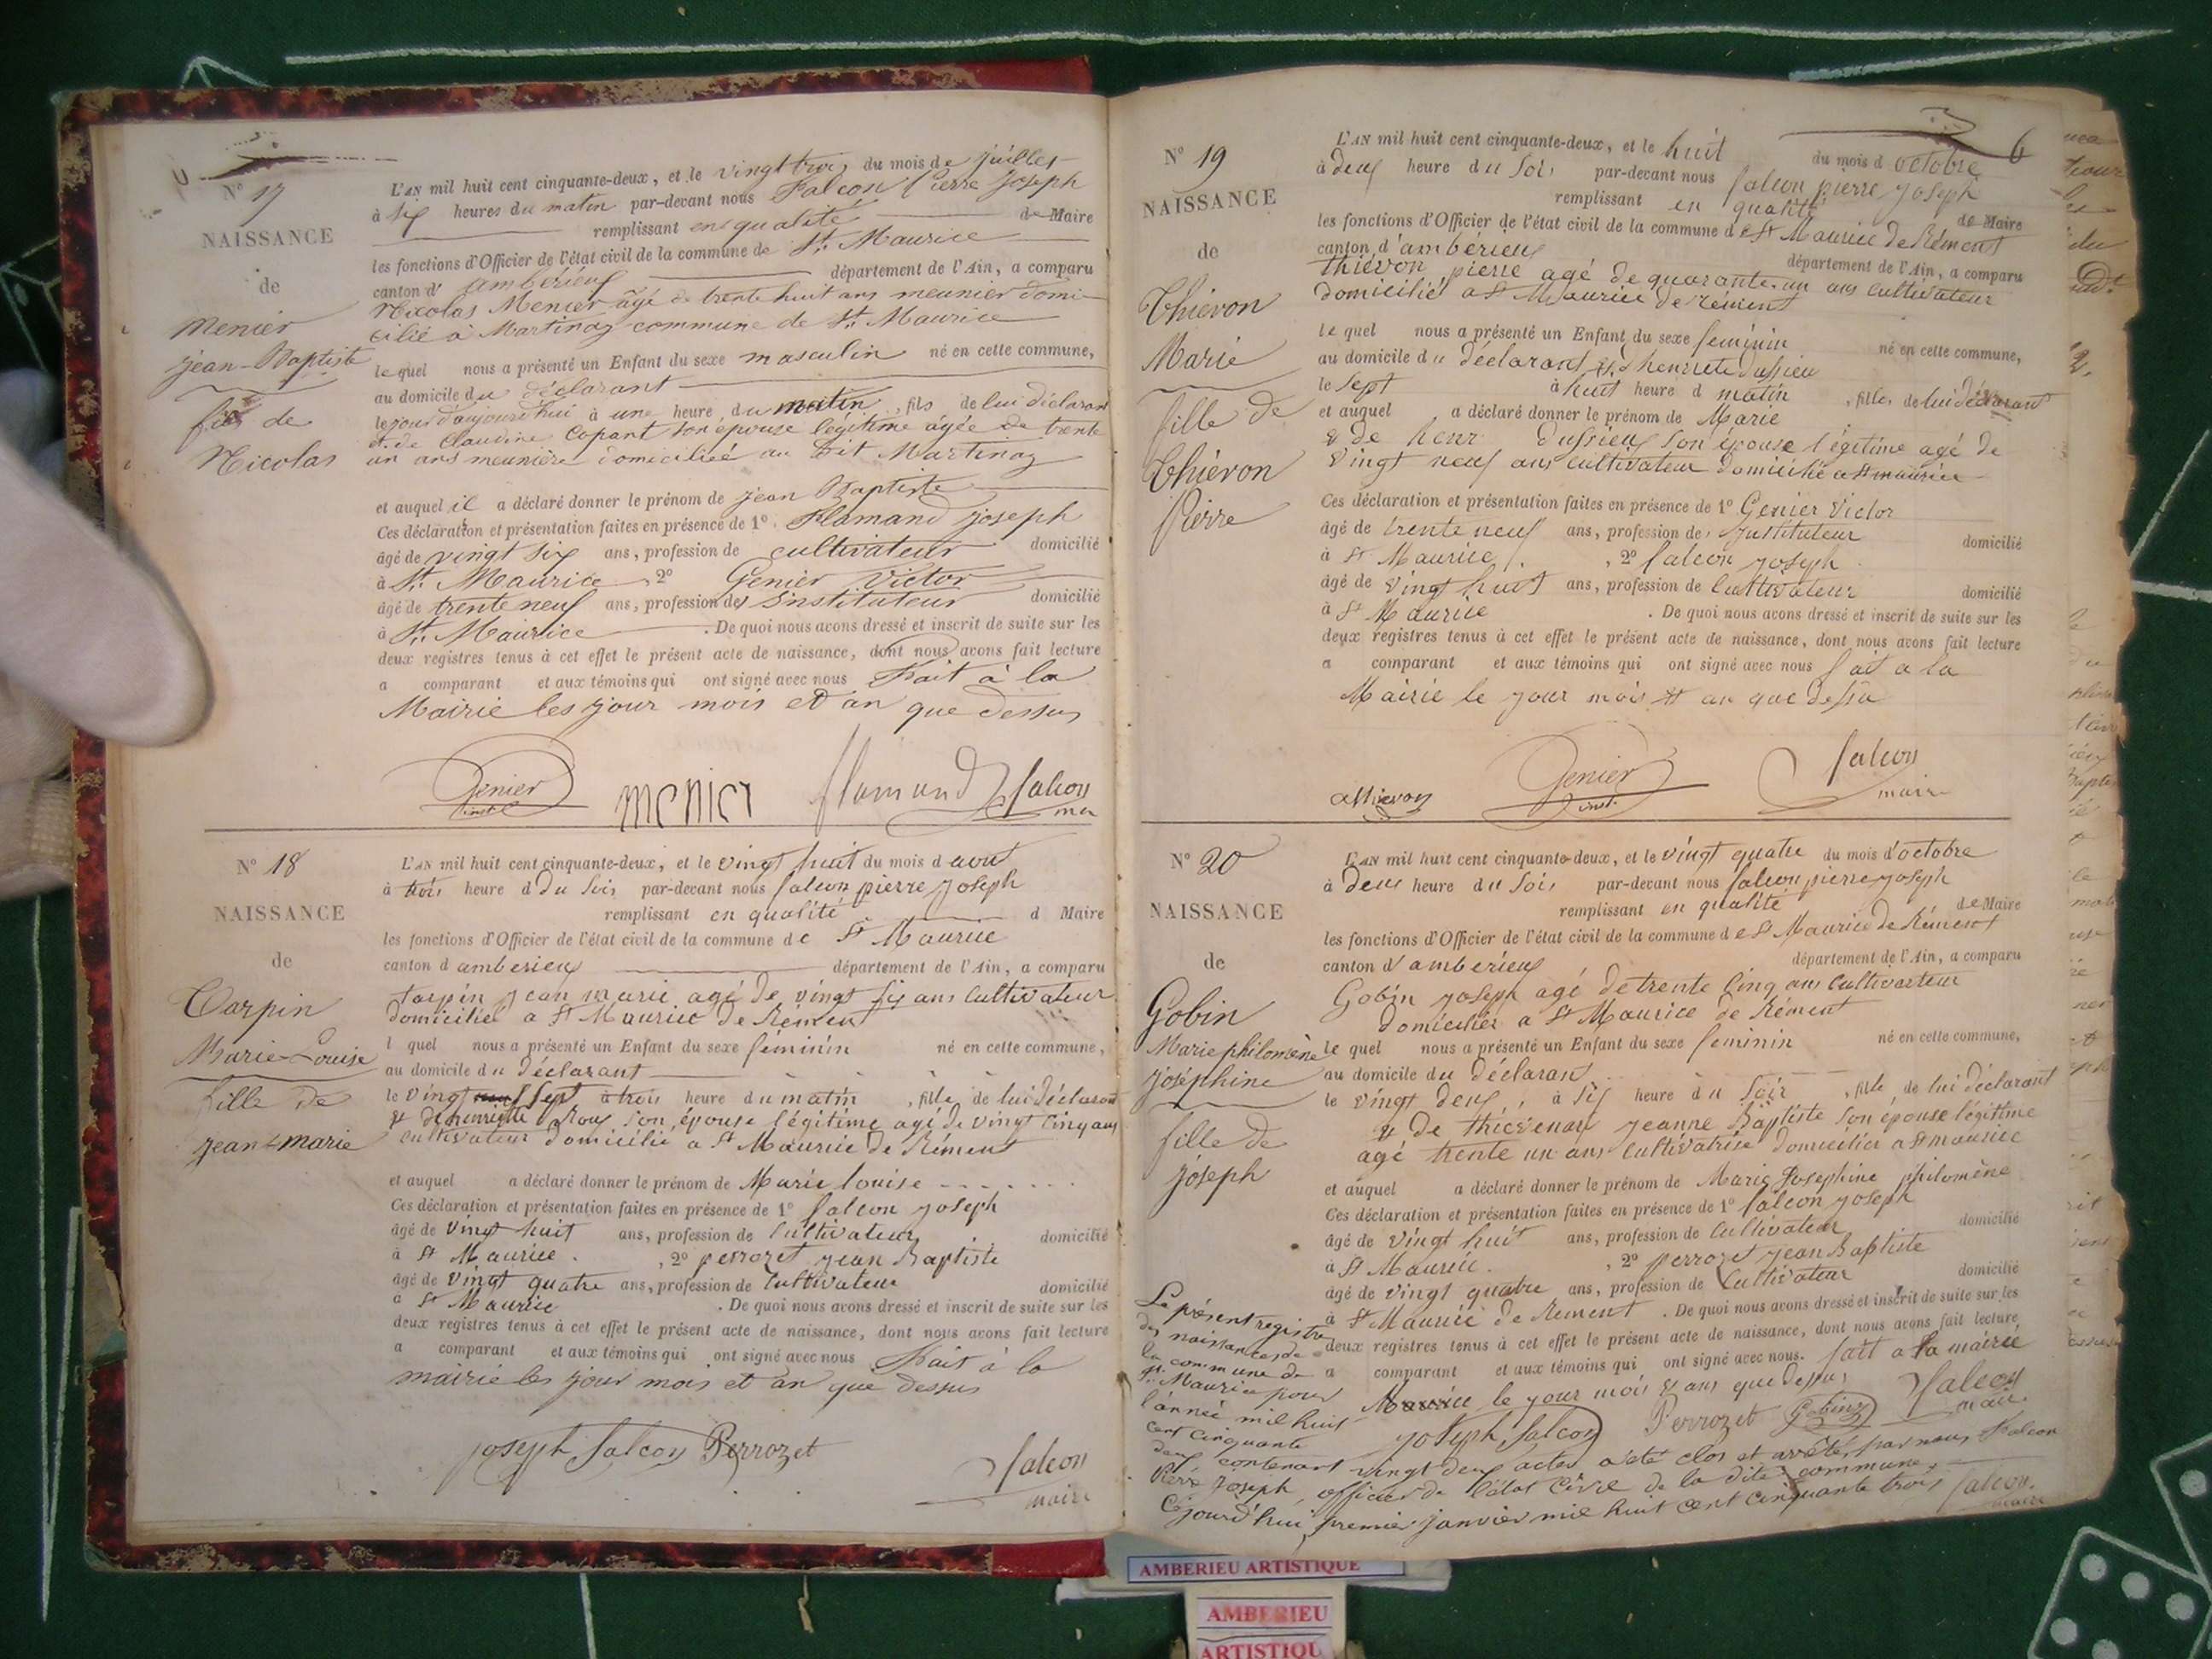 N° 17
NAISSANCE
de
Menier
Jean-Baptiste
fils de
Nicolas
L'AN mil huit cent cinquante-deux, et le vingt trois du mois de juillet
à six heures du matin par-devant nous Falcon Pierre Joseph
remplissant en qualité de Maire
les fonctions d'Officier de l'état civil de la commune de St. Maurice
canton d' ambérieux département de l'Ain, a comparu
Nicolas Menier âgé de trente huit ans meunier domi-
cilié à Martinaz commune de St. Maurice
le quel nous a présenté un Enfant du sexe masculin né en cette commune,
au domicile du déclarant
le jour d'aujourd'hui à une heure du matin, fils de lui déclarant
et de Claudine Copant son épouse légitime âgée de trente
un ans meunière domiciliée au dit Martinaz
et auquel il a déclaré donner le prénom de jean Baptiste
Ces déclaration et présentation faites en présence de 1°. Flamand joseph
âgé de vingt six ans, profession de cultivateur domicilié
à St. Maurice 2° Genier Victor
âgé de trente neuf ans, profession des instituteur domicilié
à St. Maurice . De quoi nous avons dressé et inscrit de suite sur les
deux registres tenus à cet effet le présent acte de naissance, dont nous avons fait lecture
a comparant et aux témoins qui ont signé avec nous Fait à la
Mairie les jour mois et an que dessus
Genier inst menier flamand falcon
N° 18
NAISSANCE
de
Tarpin
Marie-Louise
fille de
jean-marie
L'AN mil huit cent cinquante-deux, et le vingt huit du mois d aout
à trois heure d du soir par-devant nous falcon pierre joseph
remplissant en qualité d Maire
les fonctions d'Officier de l'état civil de la commune de St Maurice
canton d amberieux département de l'Ain, a comparu
tarpin jean marie agé de vingt six ans cultivateur
domicilié a St Maurice de Rément
l quel nous a présenté un Enfant du sexe feminin né en cette commune,
au domicile du déclarant
le vingt sept à trois heure du matin, fille de lui déclarant
& de henriette Roux son épouse légitime agé de vingt cinq ans
cultivateur domicilié a St Maurice de Rément
et auquel a déclaré donner le prénom de Marie louise
Ces déclaration et présentation faites en présence de 1° falcon joseph
âgé de vingt huit ans, profession de cultivateur domicilié
à St Maurice. , 2° perrozet jean Baptiste
âgé de vingt quatre ans, profession de cultivateur domicilié
à St Maurice . De quoi nous avons dressé et inscrit de suite sur les
deux registres tenus à cet effet le présent acte de naissance, dont nous avons fait lecture
a comparant et aux témoins qui ont signé avec nous Fait à la
mairie les jour mois et an que dessus
joseph falcon Perrozet falcon maire
6
N° 19
NAISSANCE
de
Thiévon
Marie
fille de
Thiévon
Pierre
L'AN mil huit cent cinquante-deux, et le huit du mois d octobre
à deux heure du soir par-devant nous falcon pierre joseph
remplissant en qualité de Maire
les fonctions d'Officier de l'état civil de la commune de St Maurice de Rément
canton d'ambérieux département de l'Ain, a comparu
thiévon pierre agé de quarante un ans cultivateur
domicilié a St Maurice de rément
le quel nous a présenté un Enfant du sexe feminin né en cette commune,
au domicile du déclarant
le sept à huit heure d matin, fille, de lui déclarant
et auquel a déclaré donner le prénom de Marie
& de henr dussieux son épouse légitime agé de
vingt neuf ans cultivateur domicilié a st maurice
Ces déclaration et présentation faites en présence de 1° Genier Victor
âgé de trente neuf ans, profession de, instituteur domicilié
à St Maurice. , 2° falcon joseph
âgé de vingt huit ans, profession de cultivateur domicilié
à St Maurice . De quoi nous avons dressé et inscrit de suite sur les
deux registres tenus à cet effet le présent acte de naissance, dont nous avons fait lecture
a comparant et aux témoins qui ont signé avec nous fait a la
Mairie le jour mois & an que dessu
thievon Genier inst. falcon maire
N° 20
NAISSANCE
de
Gobin
Marie philomène
joséphine
fille de
joseph
L'AN mil huit cent cinquante-deux, et le vingt quatre du mois d'octobre
à deux heure du soir par-devant nous falcon pierre joseph
remplissant en qualité de Maire
les fonctions d'Officier de l'état civil de la commune de St Maurice de Rément
canton d' amberieux département de l'Ain, a comparu
Gobin joseph agé de trente cinq ans cultivateur
domicilier a St Maurice de Rément
le quel nous a présenté un Enfant du sexe feminin né en cette commune,
au domicile du déclarant
le vingt deux, à six heure du soir, fille, de lui déclarant
& de jeanne Baptiste son épouse légitime
agé trente un ans cultivatrice domicilier a St maurice
et auquel a déclaré donner le prénom de Marie Josephine philomène
Ces déclaration et présentation faites en présence de 1° falcon joseph
âgé de vingt huit ans, profession de cultivateur domicilié
à St Maurice. , 2° perrozet jean Baptiste
âgé de vingt quatre ans, profession de cultivateur domicilié
à St Maurice de Rement . De quoi nous avons dressé et inscrit de suite sur les
deux registres tenus à cet effet le présent acte de naissance, dont nous avons fait lecture
a comparant et aux témoins qui ont signé avec nous. fait a la mairie
le jour mois & ans que dessus
joseph falcon Perrozet Gobin falcon maire
Le présent registre
des naissances de
la commune de
St. Maurice pour
l'année mil huit
cent cinquante
deux contenant vingt deux actes a été clos et arrêté par nous Falcon
Pierre Joseph, officier de l'état civil de la dite commune,
Cejourd'hui premier janvier mil huit cent cinquante trois falcon. maire
AMBERIEU ARTISTIQUE
AMBERIEU
ARTISTIQU